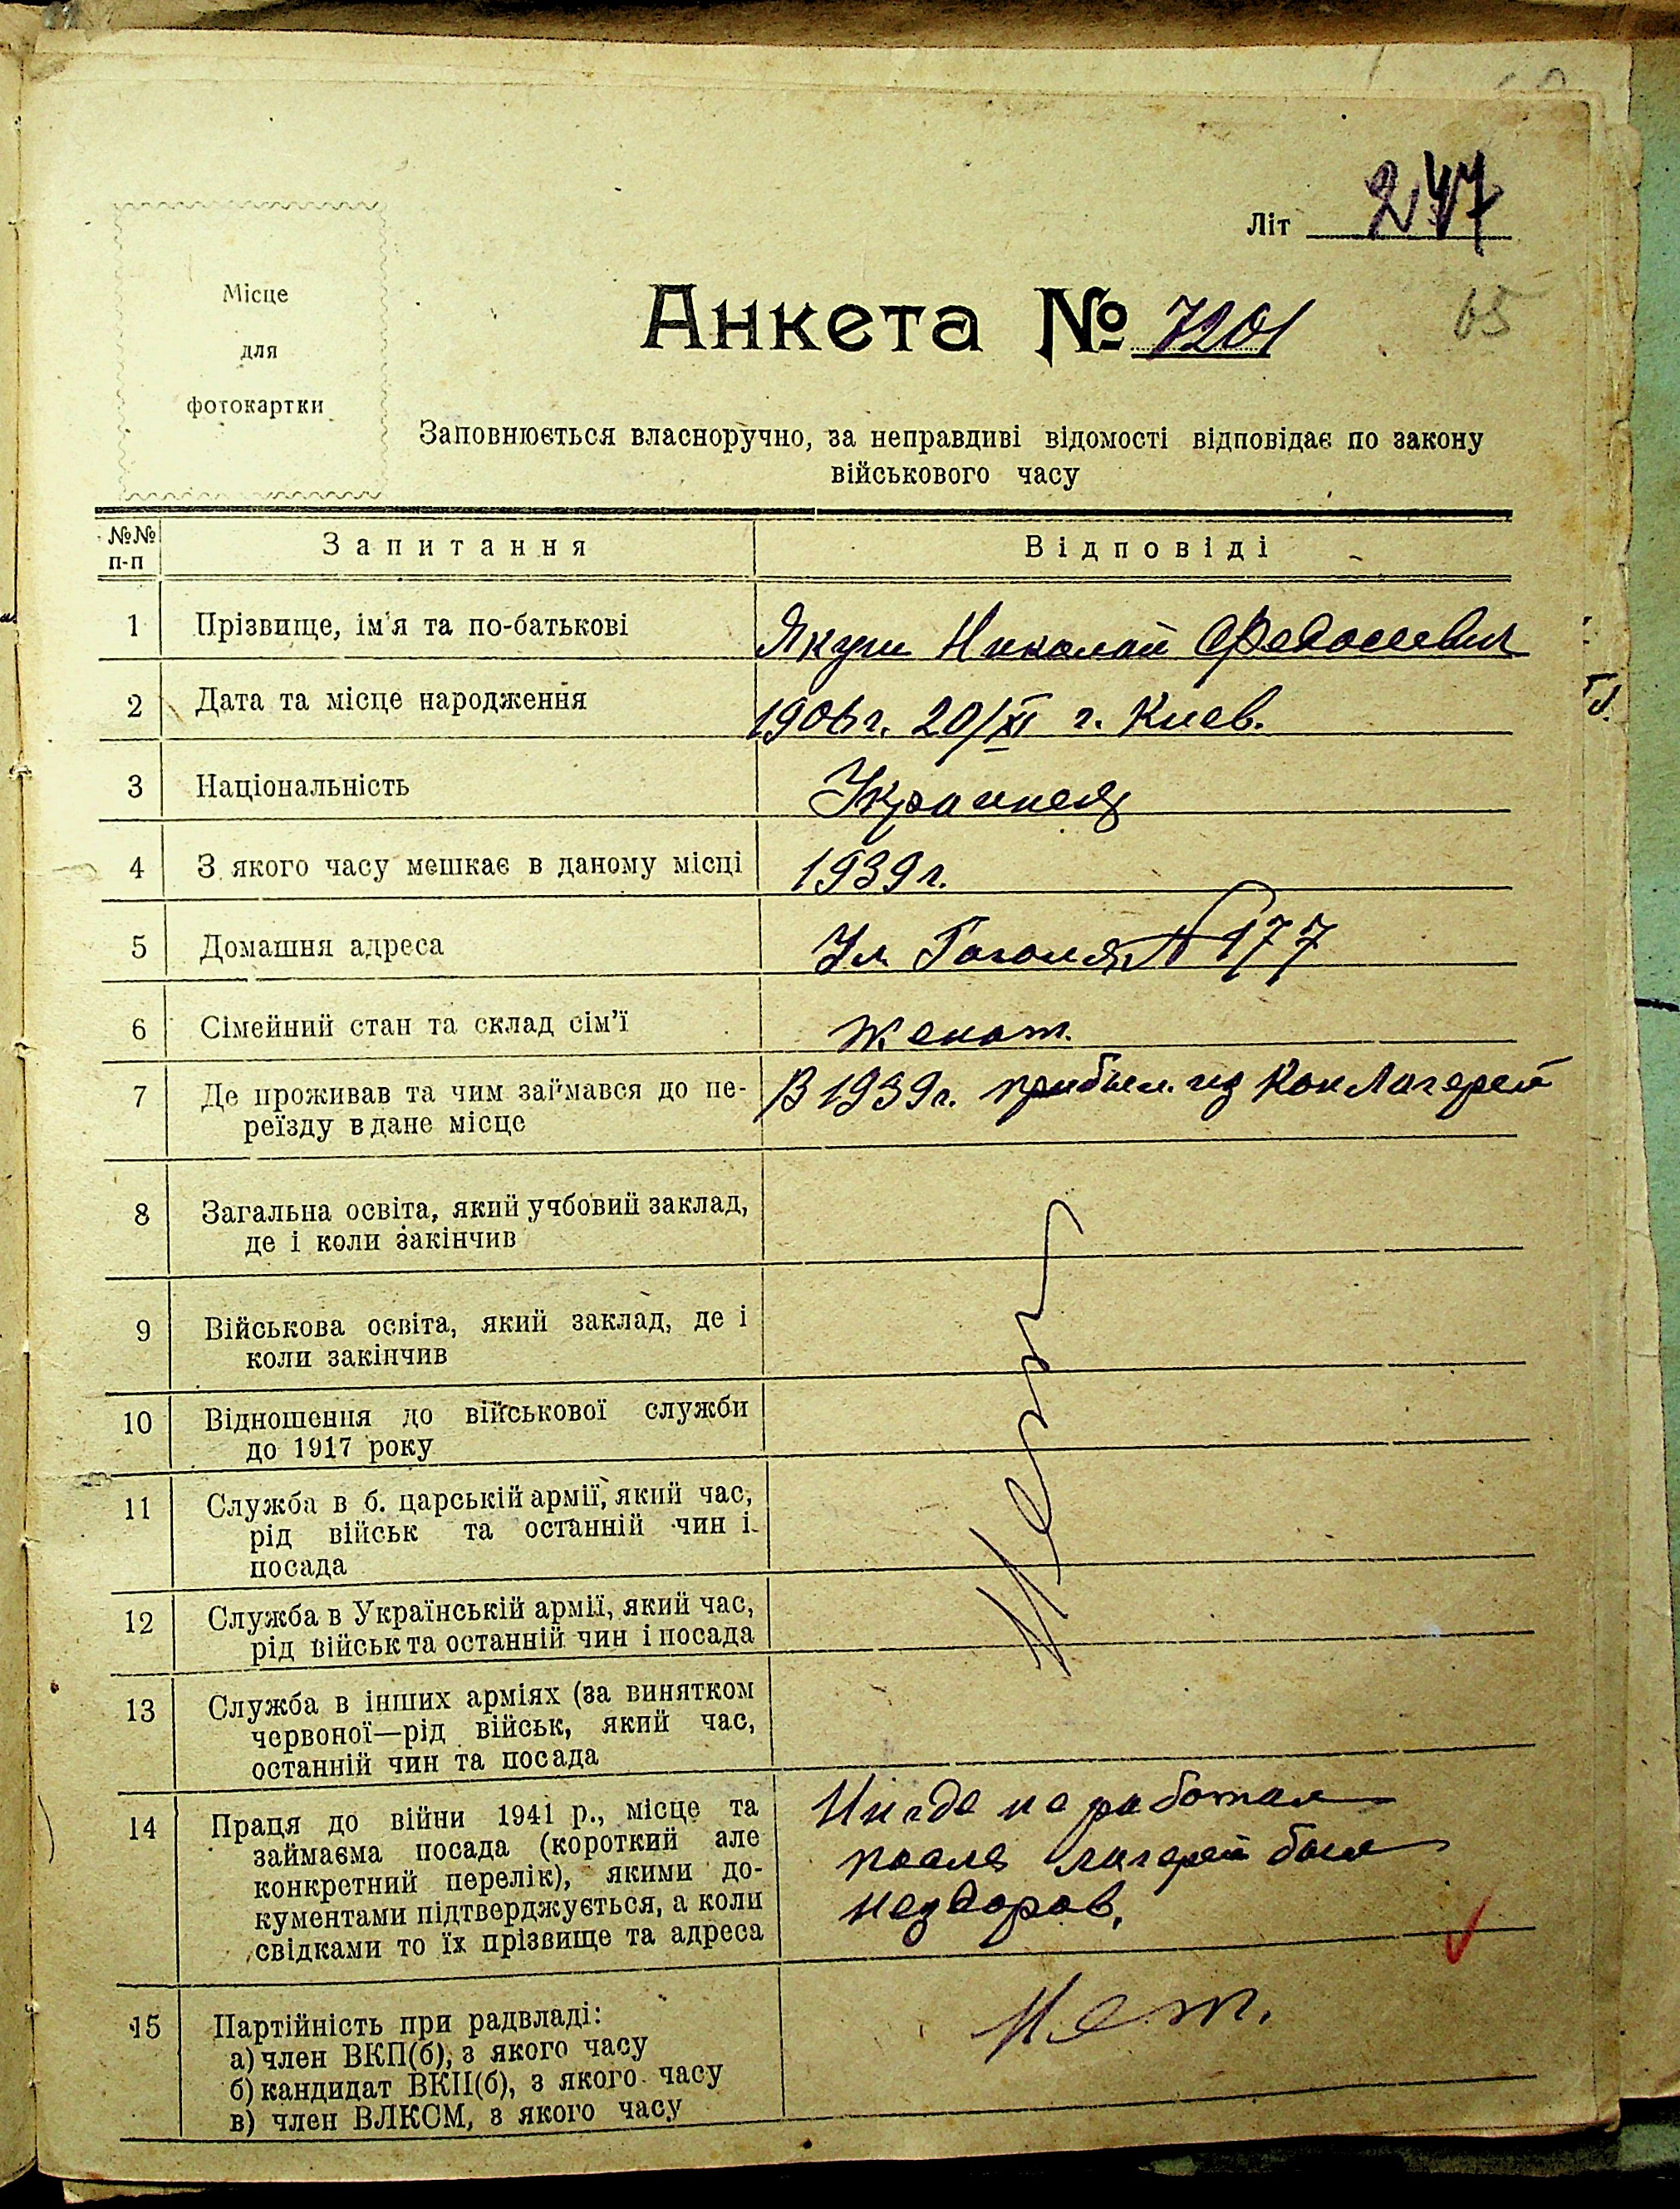 Літ 247
Місце
для
фотокартки
Анкета № 7201
65
Заповнюється власноручно, за неправдиві відомості відповідає по закону
військового часу
№№ п-п
Запитання
Відповіді
1
Прізвище, ім'я та по-батькові
Николай Федосеевич
2
Дата та місце народження
1906г. 20/XI г. Киев.
3
Національність
Украинец
4
З якого часу мешкає в даному місці
1939 г.
5
Домашня адреса
Ул Гоголя № 177
6
Сімейний стан та склад сім'ї
женат.
7
Де проживав та чим займався до пе-
реїзду в дане місце
В 1939г. прибыл из Кон Лагерей
8
Загальна освіта, який учбовий заклад,
де і коли закінчив
9
Військова освіта, який заклад, де і
коли закінчив
10
Відношення до військової служби
до 1917 року
11
Служба в б. царській армії, який час,
рід військ та останній чин і
посада
12
Служба в Українській армії, який час,
рід військ та останній чин і посада
13
Служба в інших арміях (за винятком
червоної—рід військ, який час,
останній чин та посада
Нет
14
Праця до війни 1941 р., місце та
займаєма посада (короткий але
конкретний перелік), якими до-
кументами підтверджується, а коли
свідками то їх прізвище та адреса
Нигде не работал
после лагерей был
нездоров,
15
Партійність при радвладі:
а) член ВКП(б), з якого часу
б) кандидат ВКП(б), з якого часу
в) член ВЛКСМ, з якого часу
Нет.